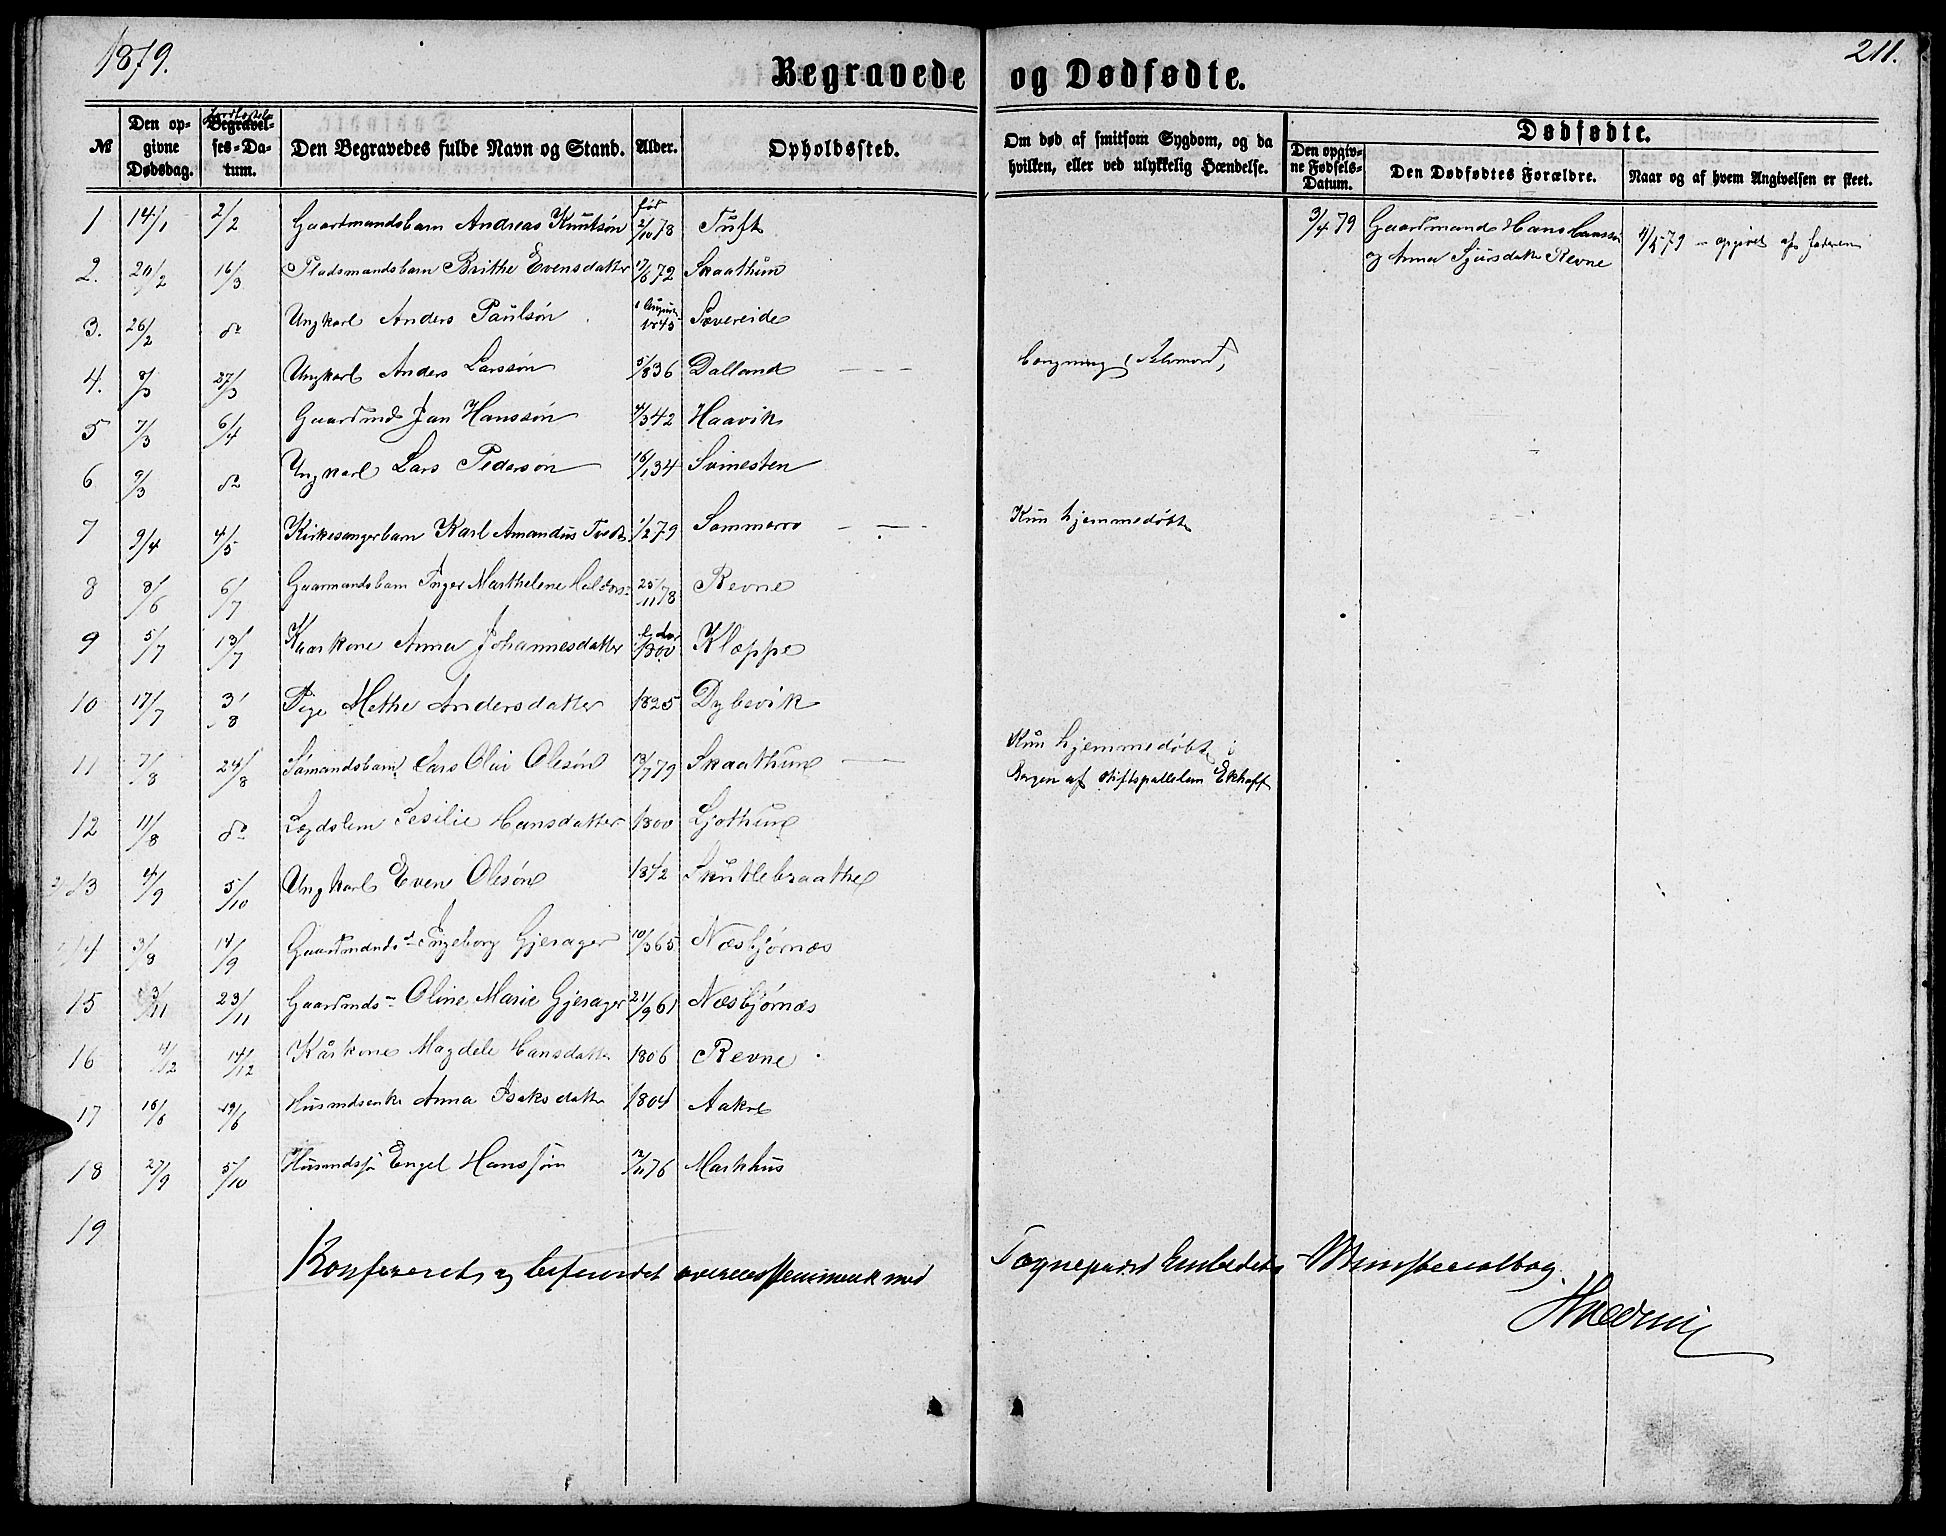 1879.
Begravede og Dødfødte.
211.
№
Den opgivne Dødsdag.
Begravelses-Datum.
Den Begravedes fulde Navn og Stand.
Alder.
Opholdssted.
Om død af smitsom Sygdom, og da hvilken, eller ved ulykkelig Hændelse.
Dødfødte.
Den opgivne Fødsels-Datum.
Den Dødfødtes Forældre.
Naar og af hvem Angivelsen er skeet.
1 14/1 2/2 Gaardmandsbarn Andreas Knutsøn før 2/10 78 Tuft
3/4 79 Gaardmand Hans Hanssøn og Anna Sjursdatter Revne 11/5 79 opgivet af faderen
2. 20/2 16/3 Pladsmandsbarn Brithe Evensdatter 17/6 72 Skaathun
3. 26/2 do Ungkarl Anders Paulsøn 1845 Sævereide
4. 8/3 27/3 Ungkarl Anders Larssøn 5/8 36 Dalland — Hængning (Selvmord)
5 7/3 6/4 Gaardmd Jan Hanssøn 4/3 42 Haavik
6 9/3 do Ungkarl Lars Pedersøn 16/1 34 Svinesten
7 9/4 4/5 Kirkesangerbarn Karl Amandus Tvedt 1/2 79 Sommerro — Kun hjemmedøbt
8 8/6 6/7 Gaarmandsbarn Inger Marthelene Haldors 25/11 78 Revne
9 5/7 13/7 Kaarkone Anna Johannesdatter 1800 Kleppe
10 17/7 3/8 Pige Methe Andersdatter 1825 Dybevik
11 7/8 24/8 Sømandsbarn Lars Olai Olesøn 13/7 79 Skaathun — Kun hjemmedøbt i Bergen af Stiftspallelan Ekhoff
12 11/8 do Lægdslem Sesilie Hansdatter 1800 Ljothun
13 4/9 5/10 Ungkarl Even Olesøn 1842 Skutlebraathe
14 3/8 14/9 Gaardmands Ingeborg Gjerager 10/3 65 Næsbjørnæs
15 13/11 23/11 Gaardmds Oline Marie Gjerager 21/9 61 Næsbjørnæs
16 4/12 14/12 Kårkone Magdele Hansdatter 1806 Revne
17 10/6 19/6 Husmdsenke Anna Isaksdatter 1804 Aakre
18 27/9 5/10 Husmdss Engel Hanssøn 12/11 76 Markhus
19
Konfereret og befundet overeensstemmende med Sogneprest Embedets Ministerialbog.